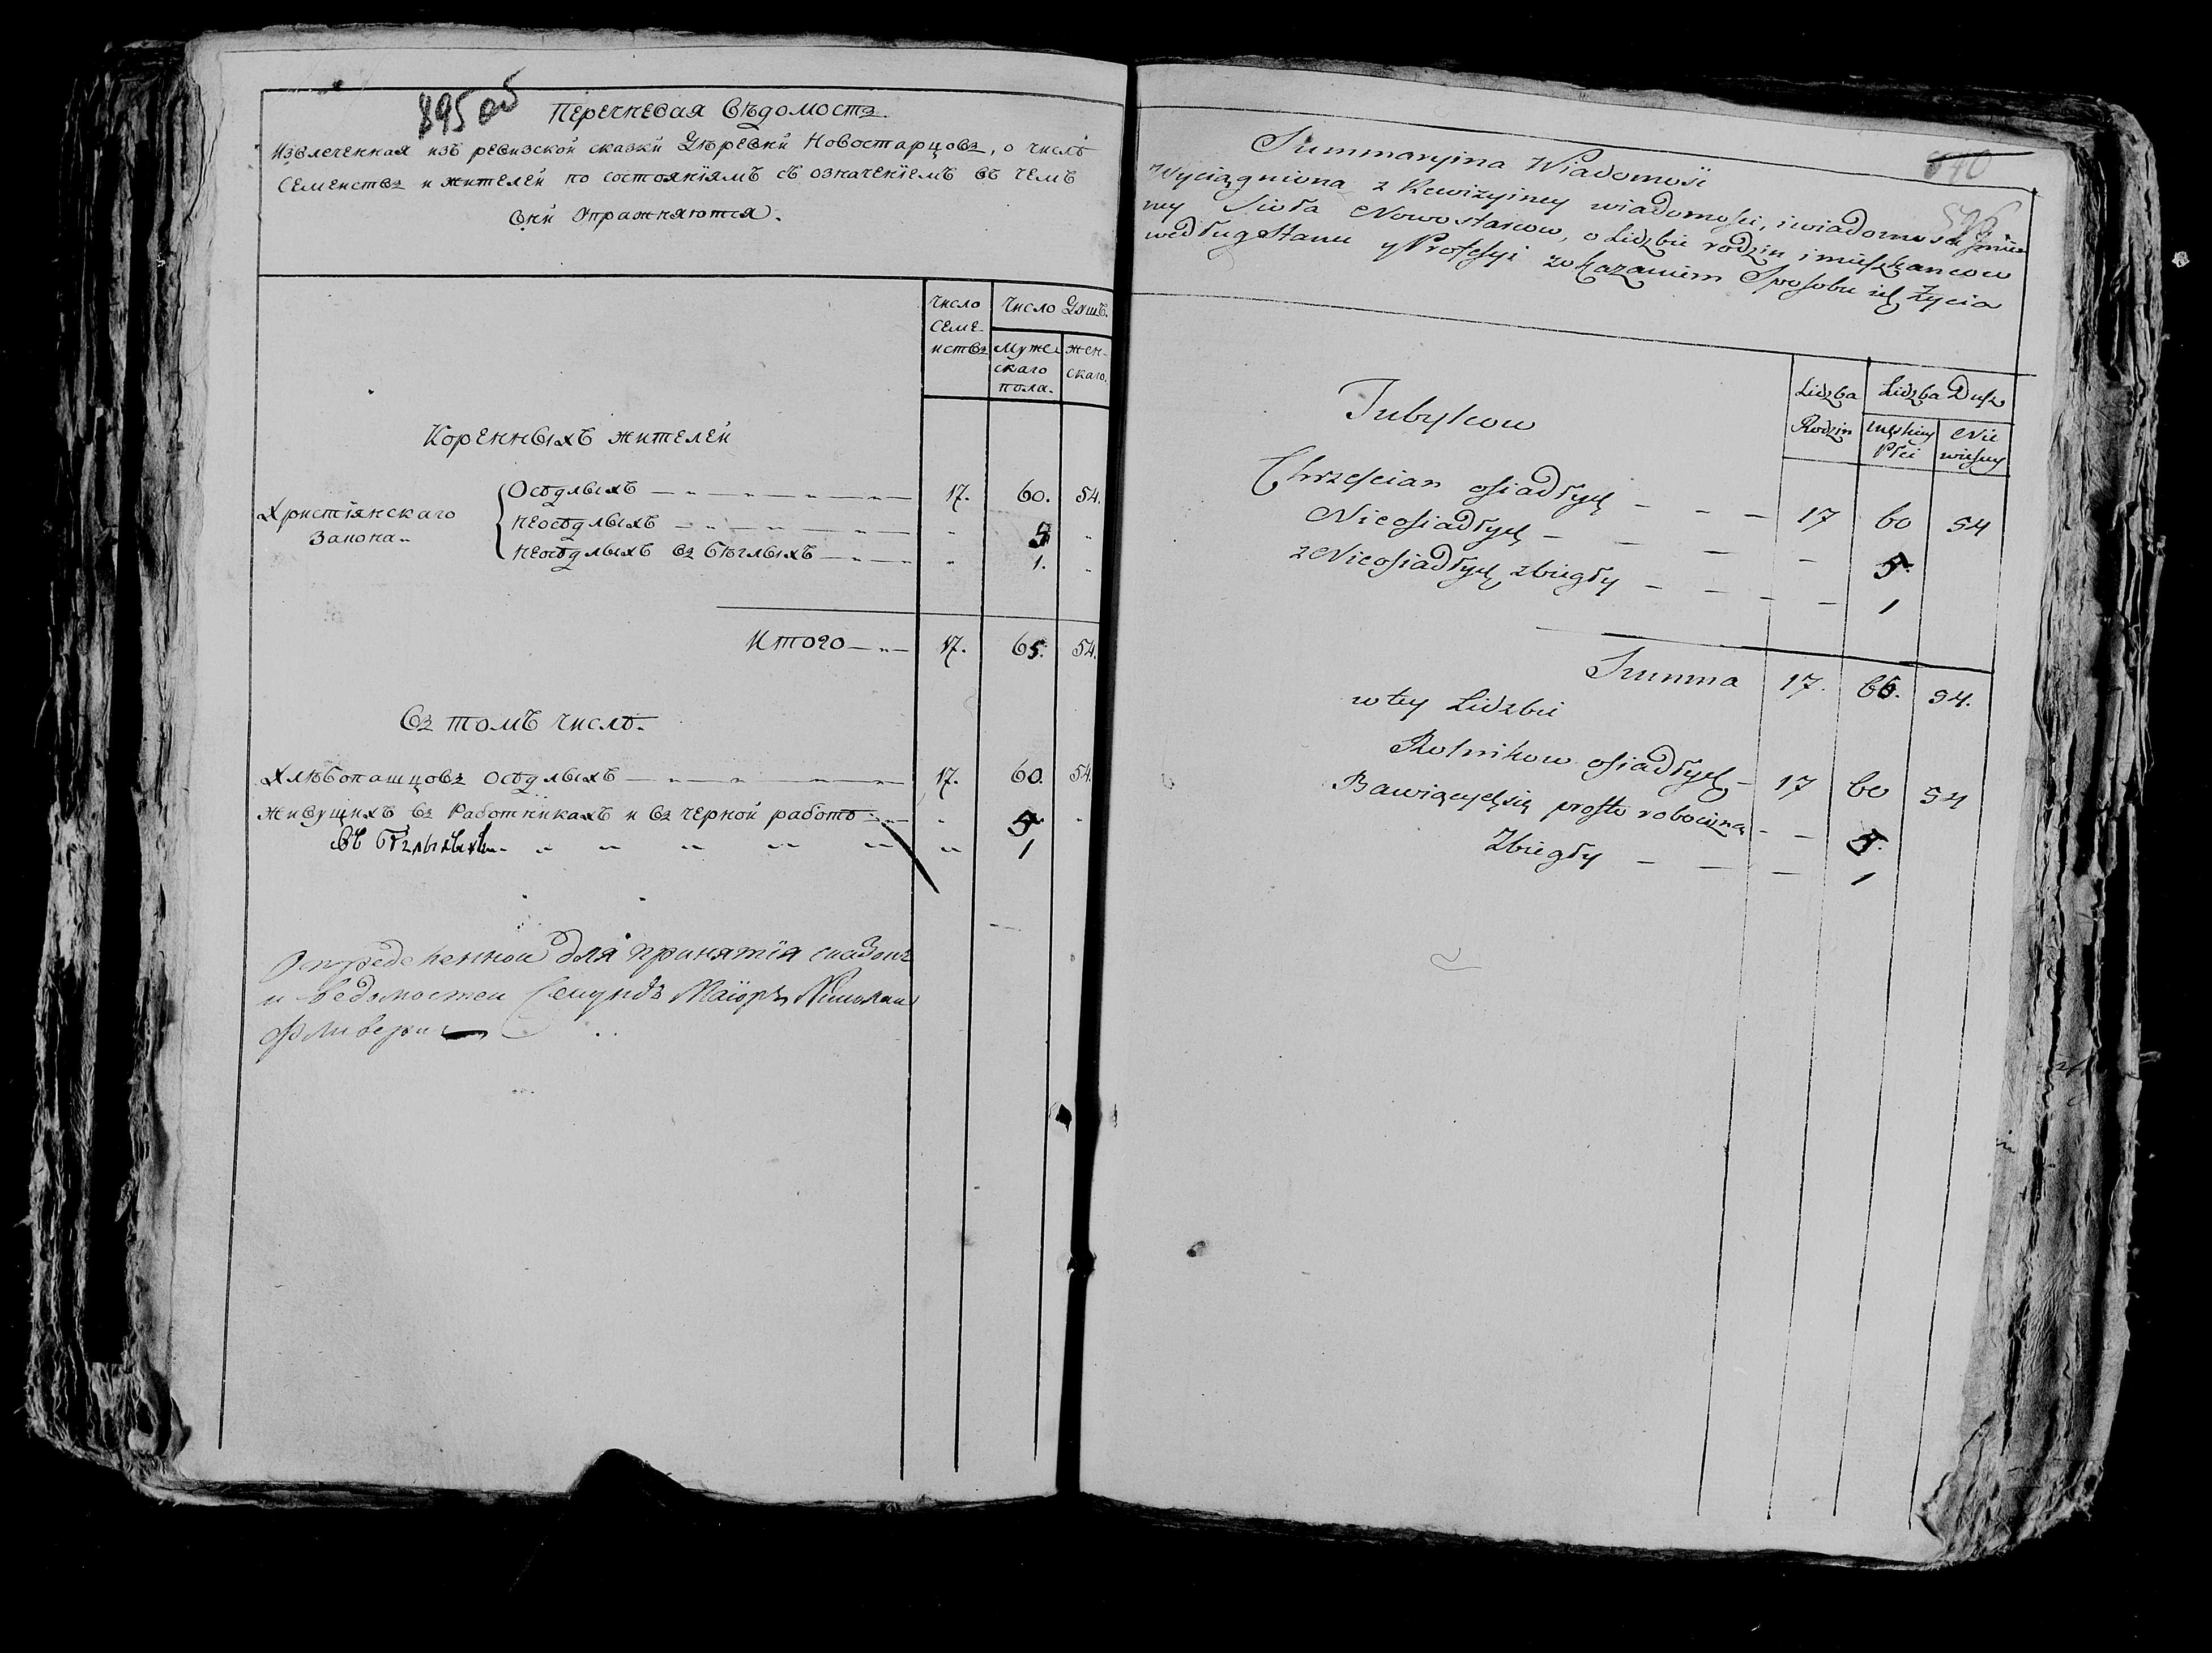 895 об
Перечневая Вѣдомость
Извлеченная изъ ревизской сказки Деревни Новостарцовъ, о числѣ
Семействъ и жителей по состоянїямъ съ означенїемъ въ чемъ
Они Упражняются.
Число Семействъ
Число Душъ.
Мужескаго пола.
женскаго.
Коренныхъ жителей
Христїянскаго Закона
Осѣдлыхъ 17. 60. 54.
неосѣдлыхъ 5
неосѣдлыхъ въ бѣглыхъ 1.
Итого 17. 65. 54.
Въ томъ числѣ
Хлѣбопашцовъ осѣдлыхъ 17. 60. 54.
Живущихъ въ Работникахъ и въ черной работѣ 5
въ бѣглыхъ 1
Определенной для принятїя сказокъ
и ведомостей Секундъ Маїоръ
Summaryina Wiadomość
Wyciągniona z Rewizyiney wiadomości, i wiadomości
ney Sioła Nowostarcow, o Lidzbie rodzin i mieszkancow
według Stanu y Profesyi z okazaniem Sposobu ich Życia
Lidzba Rodzin
Lidzba Dusz
męskiey Płci
Niewiesciey
Tubylcow
Chrześcian osiadłych 17 60 54
Nieosiadłych 5
z Nieosiadłych zbiegły 1
Summa 17. 65. 54.
w tey Lidzbie
Rolnikow osiadłych 17 60 54
Bawiących się prosto robocizną 5.
Zbiegły 1